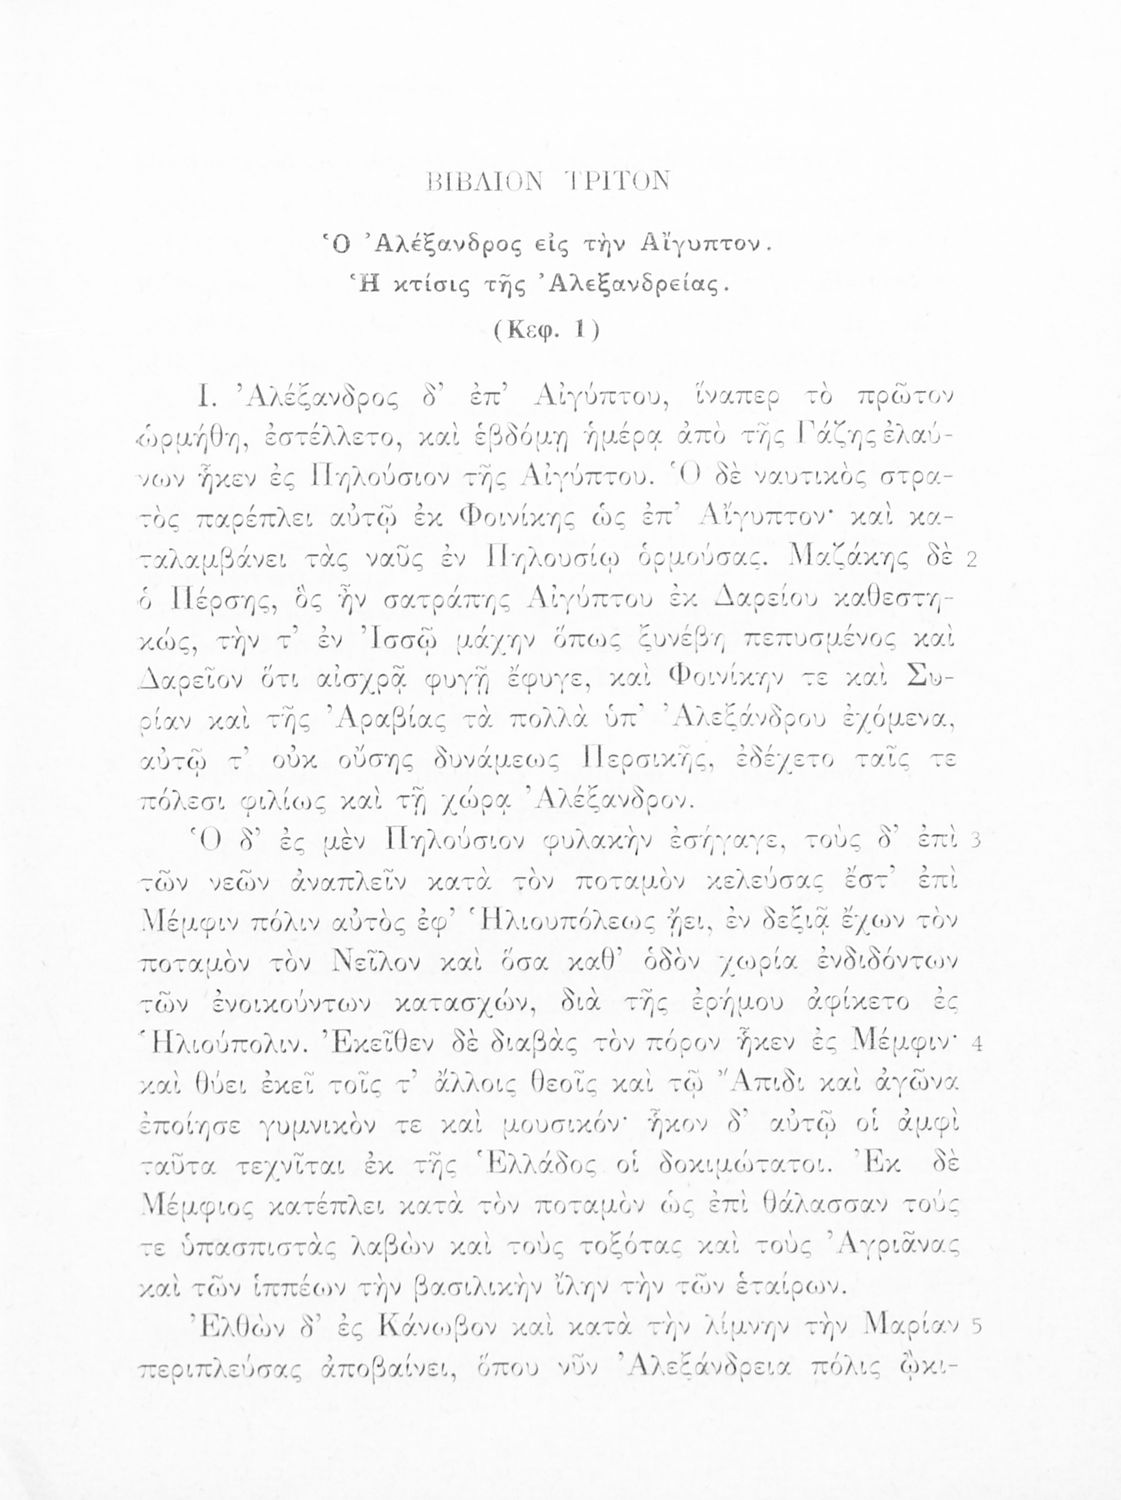 ΒΙΒΛΙΟΝ ΤΡΙΤΟΝ
Ὁ Ἀλέξανδρος εἰς τὴν Αἴγυπτον.
Ἡ κτίσις τῆς Ἀλεξανδρείας.
(Κεφ. 1)
I. Ἀλέξανδρος δ’ ἐπ’ Αἰγύπτου, ἵναπερ τὸ πρῶτον
ὡρμήθη, ἐστέλλετο, καὶ ἑβδόμῃ ἡμέρᾳ ἀπὸ τῆς Γάζης ἐλαύ-
νων ἧκεν ἐς Πηλούσιον τῆς Αἰγύπτου. Ὁ δὲ ναυτικὸς στρα-
τὸς παρέπλει αὐτῷ ἐκ Φοινίκης ὡς ἐπ’ Αἴγυπτον· καὶ κα-
ταλαμβάνει τὰς ναῦς ἐν Πηλουσίῳ ὁρμούσας. Μαζάκης δὲ 2
ὁ Πέρσης, ὃς ἦν σατράπης Αἰγύπτου ἐκ Δαρείου καθεστη-
κώς, τὴν τ’ ἐν Ἰσσῷ μάχην ὅπως ξυνέβη πεπυσμένος καὶ
Δαρεῖον ὅτι αἰσχρᾷ φυγῇ ἔφυγε, καὶ Φοινίκην τε καὶ Συ-
ρίαν καὶ τῆς Ἀραβίας τὰ πολλὰ ὑπ’ Ἀλεξάνδρου ἐχόμενα,
αὐτῷ τ’ οὐκ οὔσης δυνάμεως Περσικῆς, ἐδέχετο ταῖς τε
πόλεσι φιλίως καὶ τῇ χώρᾳ Ἀλέξανδρον.
Ὁ δ’ ἐς μὲν Πηλούσιον φυλακὴν ἐσήγαγε, τοὺς δ’ ἐπὶ 3
τῶν νεῶν ἀναπλεῖν κατὰ τὸν ποταμὸν κελεύσας ἔστ’ ἐπὶ
Μέμφιν πόλιν αὐτὸς ἐφ’ Ἡλιουπόλεως ᾔει, ἐν δεξιᾷ ἔχων τὸν
ποταμὸν τὸν Νεῖλον καὶ ὅσα καθ’ ὁδὸν χωρία ἐνδιδόντων
τῶν ἐνοικούντων κατασχών, διὰ τῆς ἐρήμου ἀφίκετο ἐς
Ἡλιούπολιν. Ἐκεῖθεν δὲ διαβὰς τὸν πόρον ἧκεν ἐς Μέμφιν· 4
καὶ θύει ἐκεῖ τοῖς τ’ ἄλλοις θεοῖς καὶ τῷ Ἄπιδι καὶ ἀγῶνα
ἐποίησε γυμνικὸν τε καὶ μουσικόν· ἧκον δ’ αὐτῷ οἱ ἀμφὶ
ταῦτα τεχνῖται ἐκ τῆς Ἑλλάδος οἱ δοκιμώτατοι. Ἐκ δὲ
Μέμφιος κατέπλει κατὰ τὸν ποταμὸν ὡς ἐπὶ θάλασσαν τούς
τε ὑπασπιστὰς λαβὼν καὶ τοὺς τοξότας καὶ τοὺς Ἀγριᾶνας
καὶ τῶν ἱππέων τὴν βασιλικὴν ἴλην τὴν τῶν ἑταίρων.
Ἐλθὼν δ’ ἐς Κάνωβον καὶ κατὰ τὴν λίμνην τὴν Μαρίαν 5
περιπλεύσας ἀποβαίνει, ὅπου νῦν Ἀλεξάνδρεια πόλις ᾤκι-